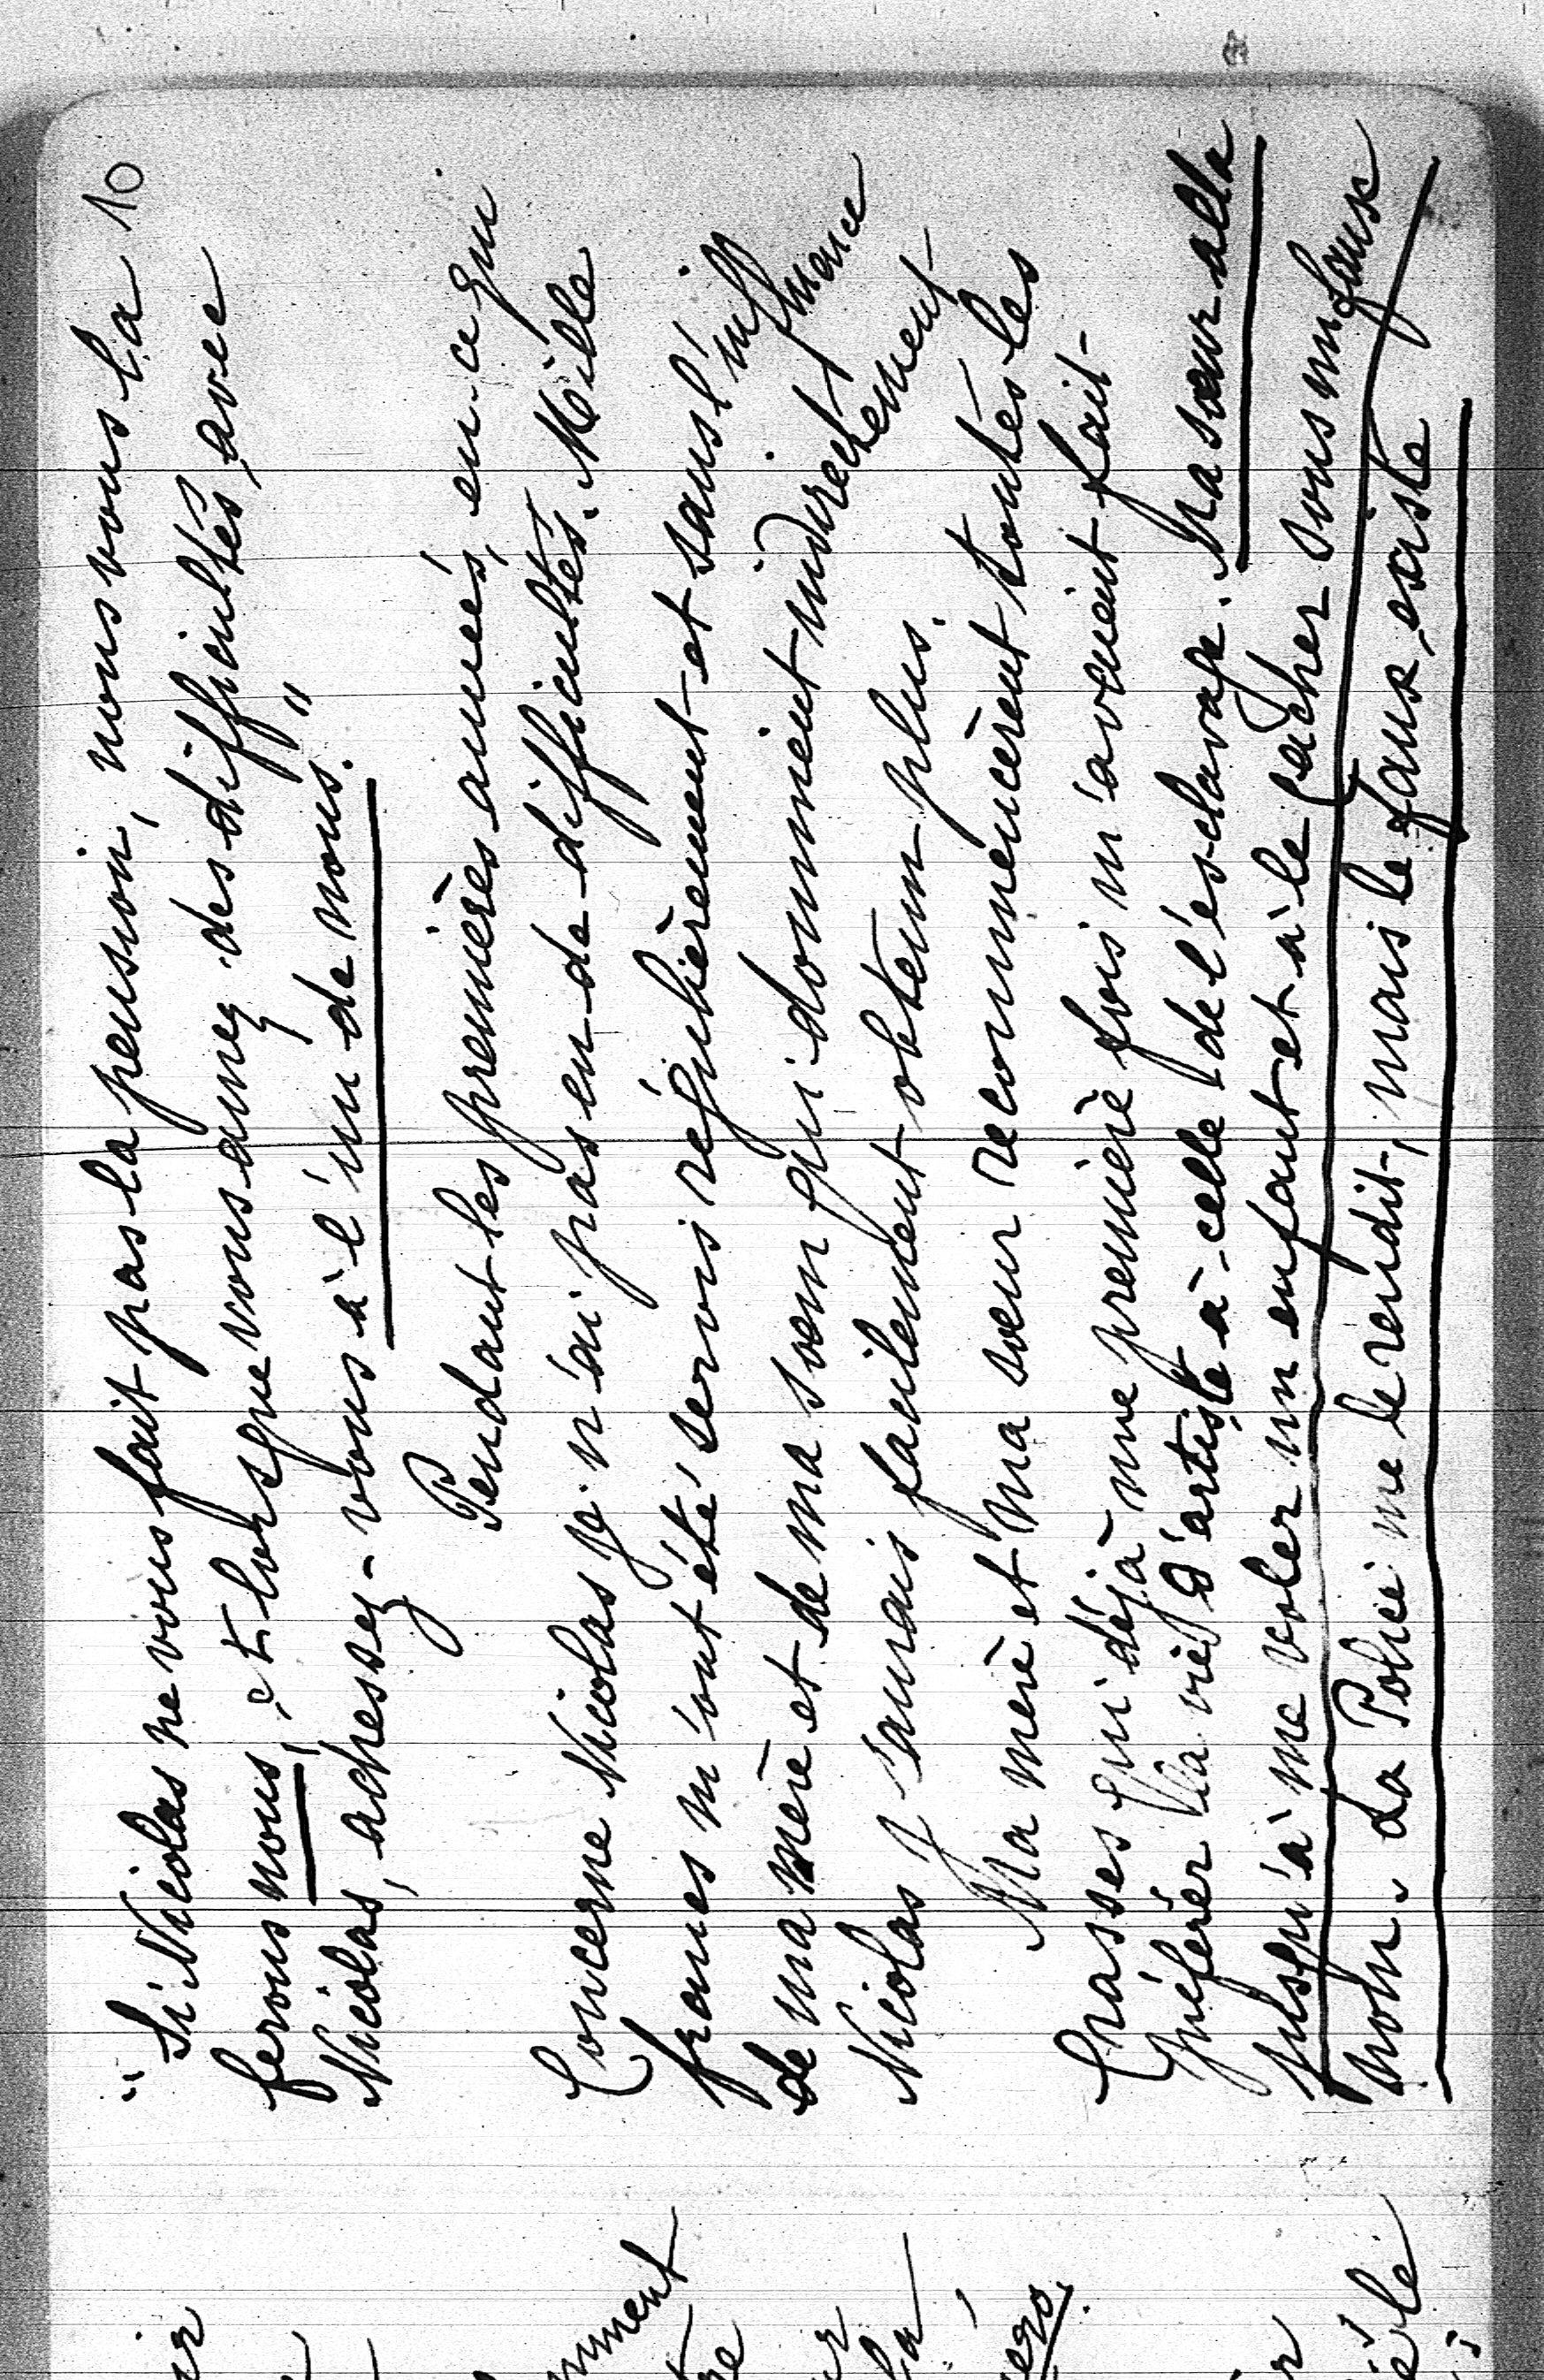 10
" Si Nicolas ne vous fait pas la pension, nous vous la
ferons nous, et lorsque vous aurez des difficultés avec
Nicolas, adressez-vous à l'un de nous. "
Pendant les premières années, en ce qui
concerne Nicolas je n'ai pas eu de difficultés. Mille
francs m'ont été servis régulièrement et sans l'influence
de ma mère et de ma soeur qui donnaient indirectement
Nicolas j'aurais facilement obtenu plus.
Ma mère et ma soeur recommencèrent toutes les
crasses qui déjà une première fois m'avaient fait
préférer la vie d'artiste à celle de l'esclavage. Ma soeur alla
jusqu'à me voler un enfant et à le cacher sous un faux
nom. La Police me le rendit, mais le faux existe
ir
mment
re
ur
la
ero.
er
lé